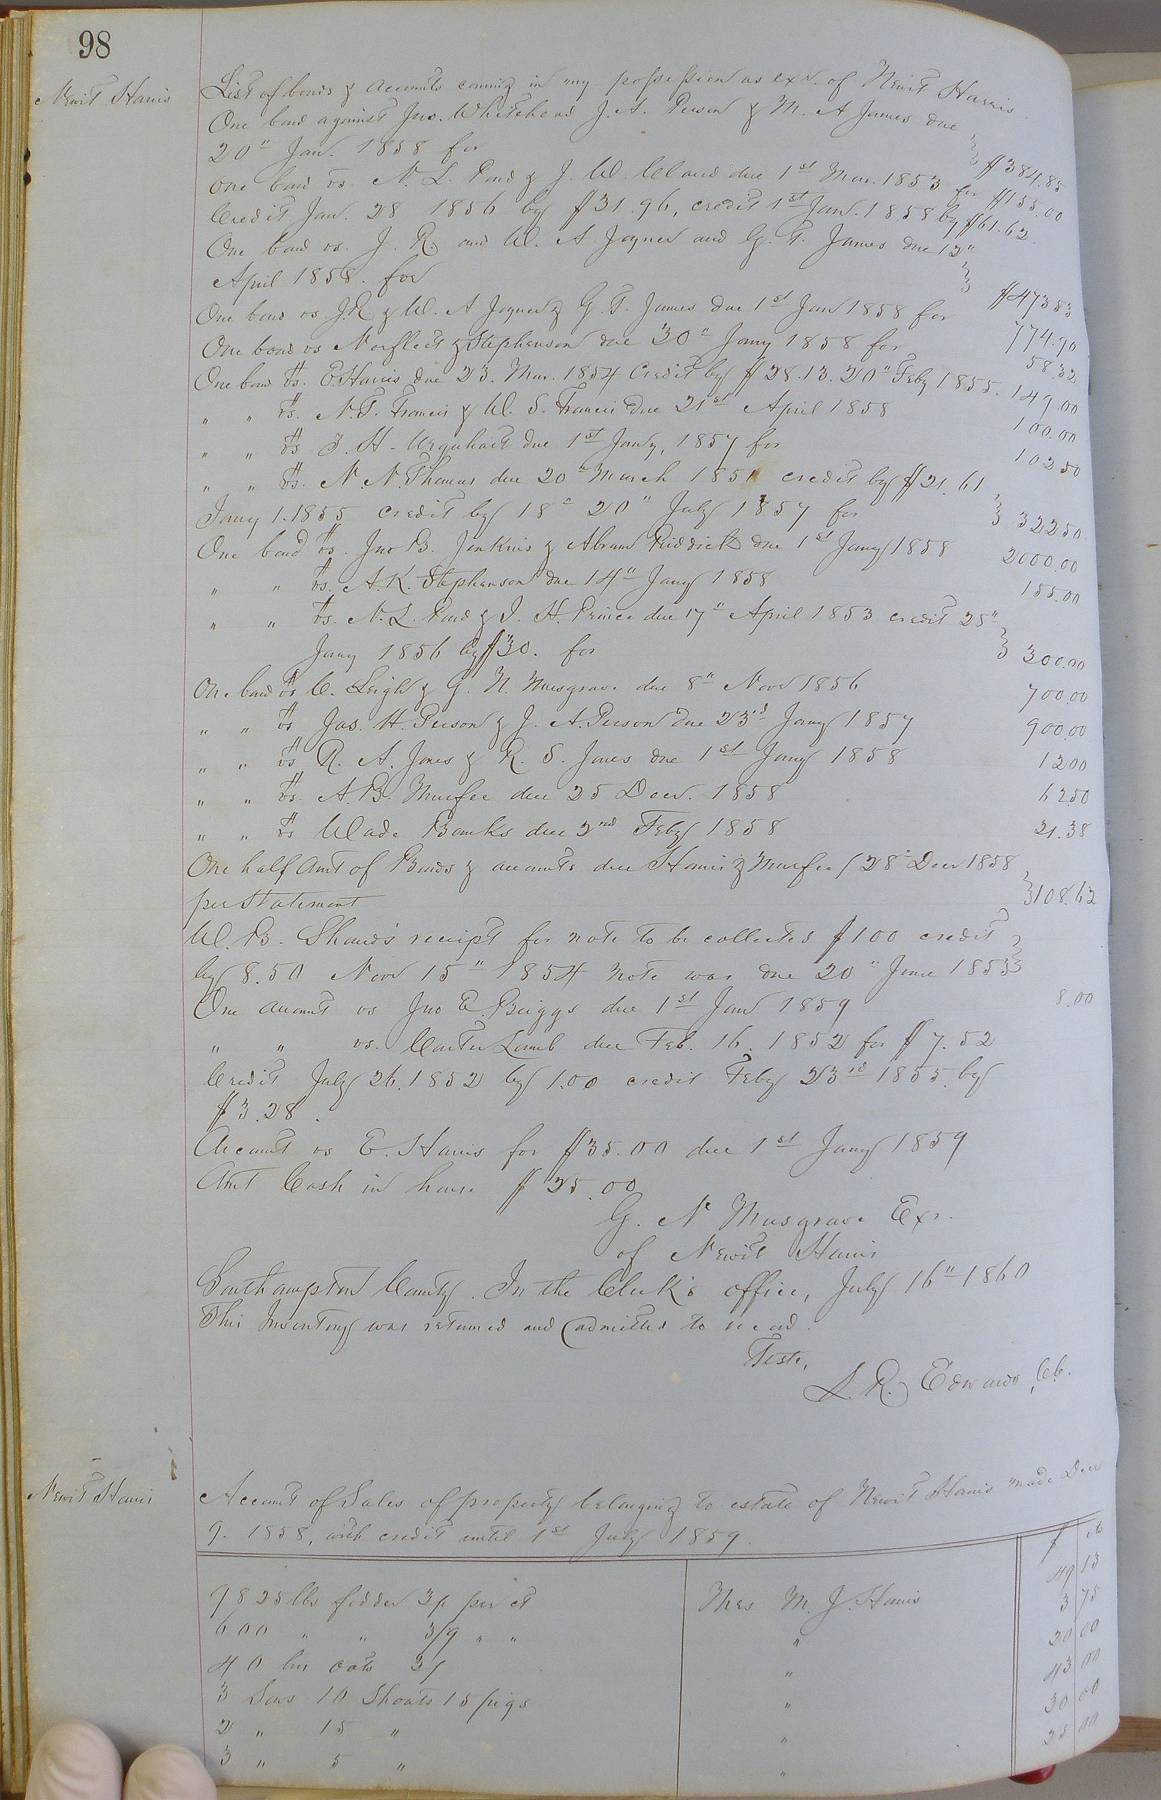 98
Newit Harris
List of bonds & accounts coming in my possession as exr. of Newit Harris
One bond against Jno. Whitehead J. A. Person & M. A James due
20" Jan. 1858 for $384.85
One bond vs. N. L. Pond & J. W. Claud due 1st Mar. 1853 for $155.00
Credit Jan. 28 1856 by $31.96, credit 1st Jan. 1858 by $61.62
One bond vs. J. R. and W. A Joyner and G. T. James due 12"
April 1858. for $473.83
One bond vs J.R & W. A Joyner & G. T. James due 1st Jan 1858 for 774.90
One bond vs Norfleet & Stephenson due 30" Jany 1858 for 58.32
One bond vs. E Harris due 23. Mar. 1854 Credit by $28.13. 20" Feby 1855. 149.00
" " vs. N. T. Francis & W. S. Francis due 21st April 1858 100.00
" " vs J. H. Urquhart due 1st Jany, 1857 for 102.50
" " vs. N. N. Thomas due 20" March 1851 credit by $21.61
Jany 1. 1855 credit by 18" 20" July 1857 for 322.50
One bond vs. Jno B. Jenkins & Abram Riddick due 1st Jany 1858 2000.00
" " vs. A. K. Stephenson due 14" Jany 1858 155.00
" " vs. N. L. Pond & J. H. Prince due 17" April 1853 credit 25"
Jany 1856 by $30. for 300.00
One bond vs C. Leigh & G. N. Musgrave due 8" Novr 1856 700.00
" " vs Jas. H. Person & J. A. Person due 23rd Jany 1857 900.00
" " vs R. A. Jones & R. S. Jones due 1st Jany 1858 12.00
" " vs. A. B. Murfee due 25 Decr. 1858 62.50
" " vs Wade Banks due 2nd Feby 1858 21.38
One half Amt of Bonds & accounts due Harris & Murfee (28" Decr 1858
per statement 108.62
W. B. Shands receipt for note to be collected $100 credit
by 8.50 Novr 15" 1854 note was due 20" June 1853
One account vs Jno E. Briggs due 1st Jan 1859 8.00
" " vs. Carter Lamb due Feb. 16. 1852 for $7.52
Credit July 26. 1852 by 1.00 credit Feby 23rd 1855. by
$3.28.
Account vs E. Harris for $35.00 due 1st Jany 1859
Amt Cash in house $25.00
G. N Musgrave Exr.
of Newit Harris
Southampton County. In the Clerk's office, July 16" 1860
This Inventory was returned and admitted to record.
Teste,
L. R. Edwards, Cb.
Newit Harris
Account of Sales of property belonging to estate of Newit Harris made Dec
9. 1858, with credit until 1st July 1859.
$ cts
9825 lbs fodder 3/ per ct Mrs M. J. Harris 49 13
600 " " 3/9 " " " 3 75
40 bus oats 3/ " 20 00
3 Sows 10 Shoats 15 pigs " 43 00
2 " 15 " " 30 00
3 " 5 " " 25 00